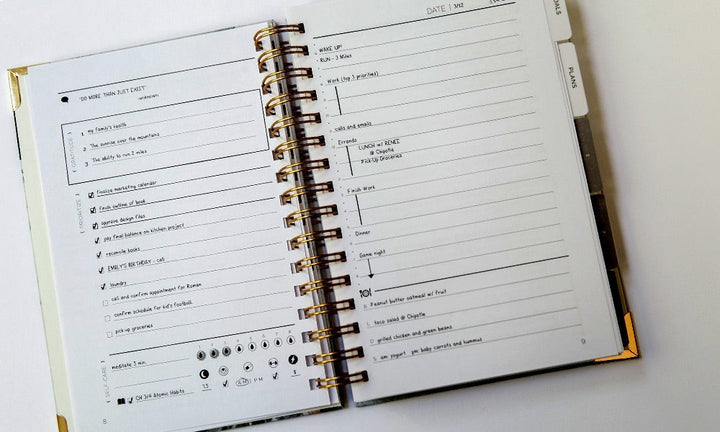 "DO MORE THAN JUST EXIST"
-unknown
GRATITUDE
1 my family's health
2 The sunrise over the mountains
3 The ability to run 2 miles
PRIORITIZE
finalize marketing calendar
finish outline of book
approve design files
pay final balance on kitchen project
reconcile books
EMILY'S BIRTHDAY - call
laundry
call and confirm appointment for Roman
confirm schedule for kid's football
pick-up groceries
SELF-CARE
meditate 3 min.
1 2 3 4 5 6 7 8
7.5
A.M. P M
8
CH 3/4 Atomic Habits
8
DATE | 3/12
WAKE UP!
RUN - 2 Miles
Work (top 3 priorities)
calls and emails
Errands
LUNCH w/ RENEE
@ Chipotle
Pick-Up Groceries
Finish Work
Dinner
Game night
B. Peanut butter oatmeal w/ fruit
L. taco salad @ Chipotle
D. grilled chicken and green beans
S. am: yogurt pm: baby carrots and hummus
9
PLANS